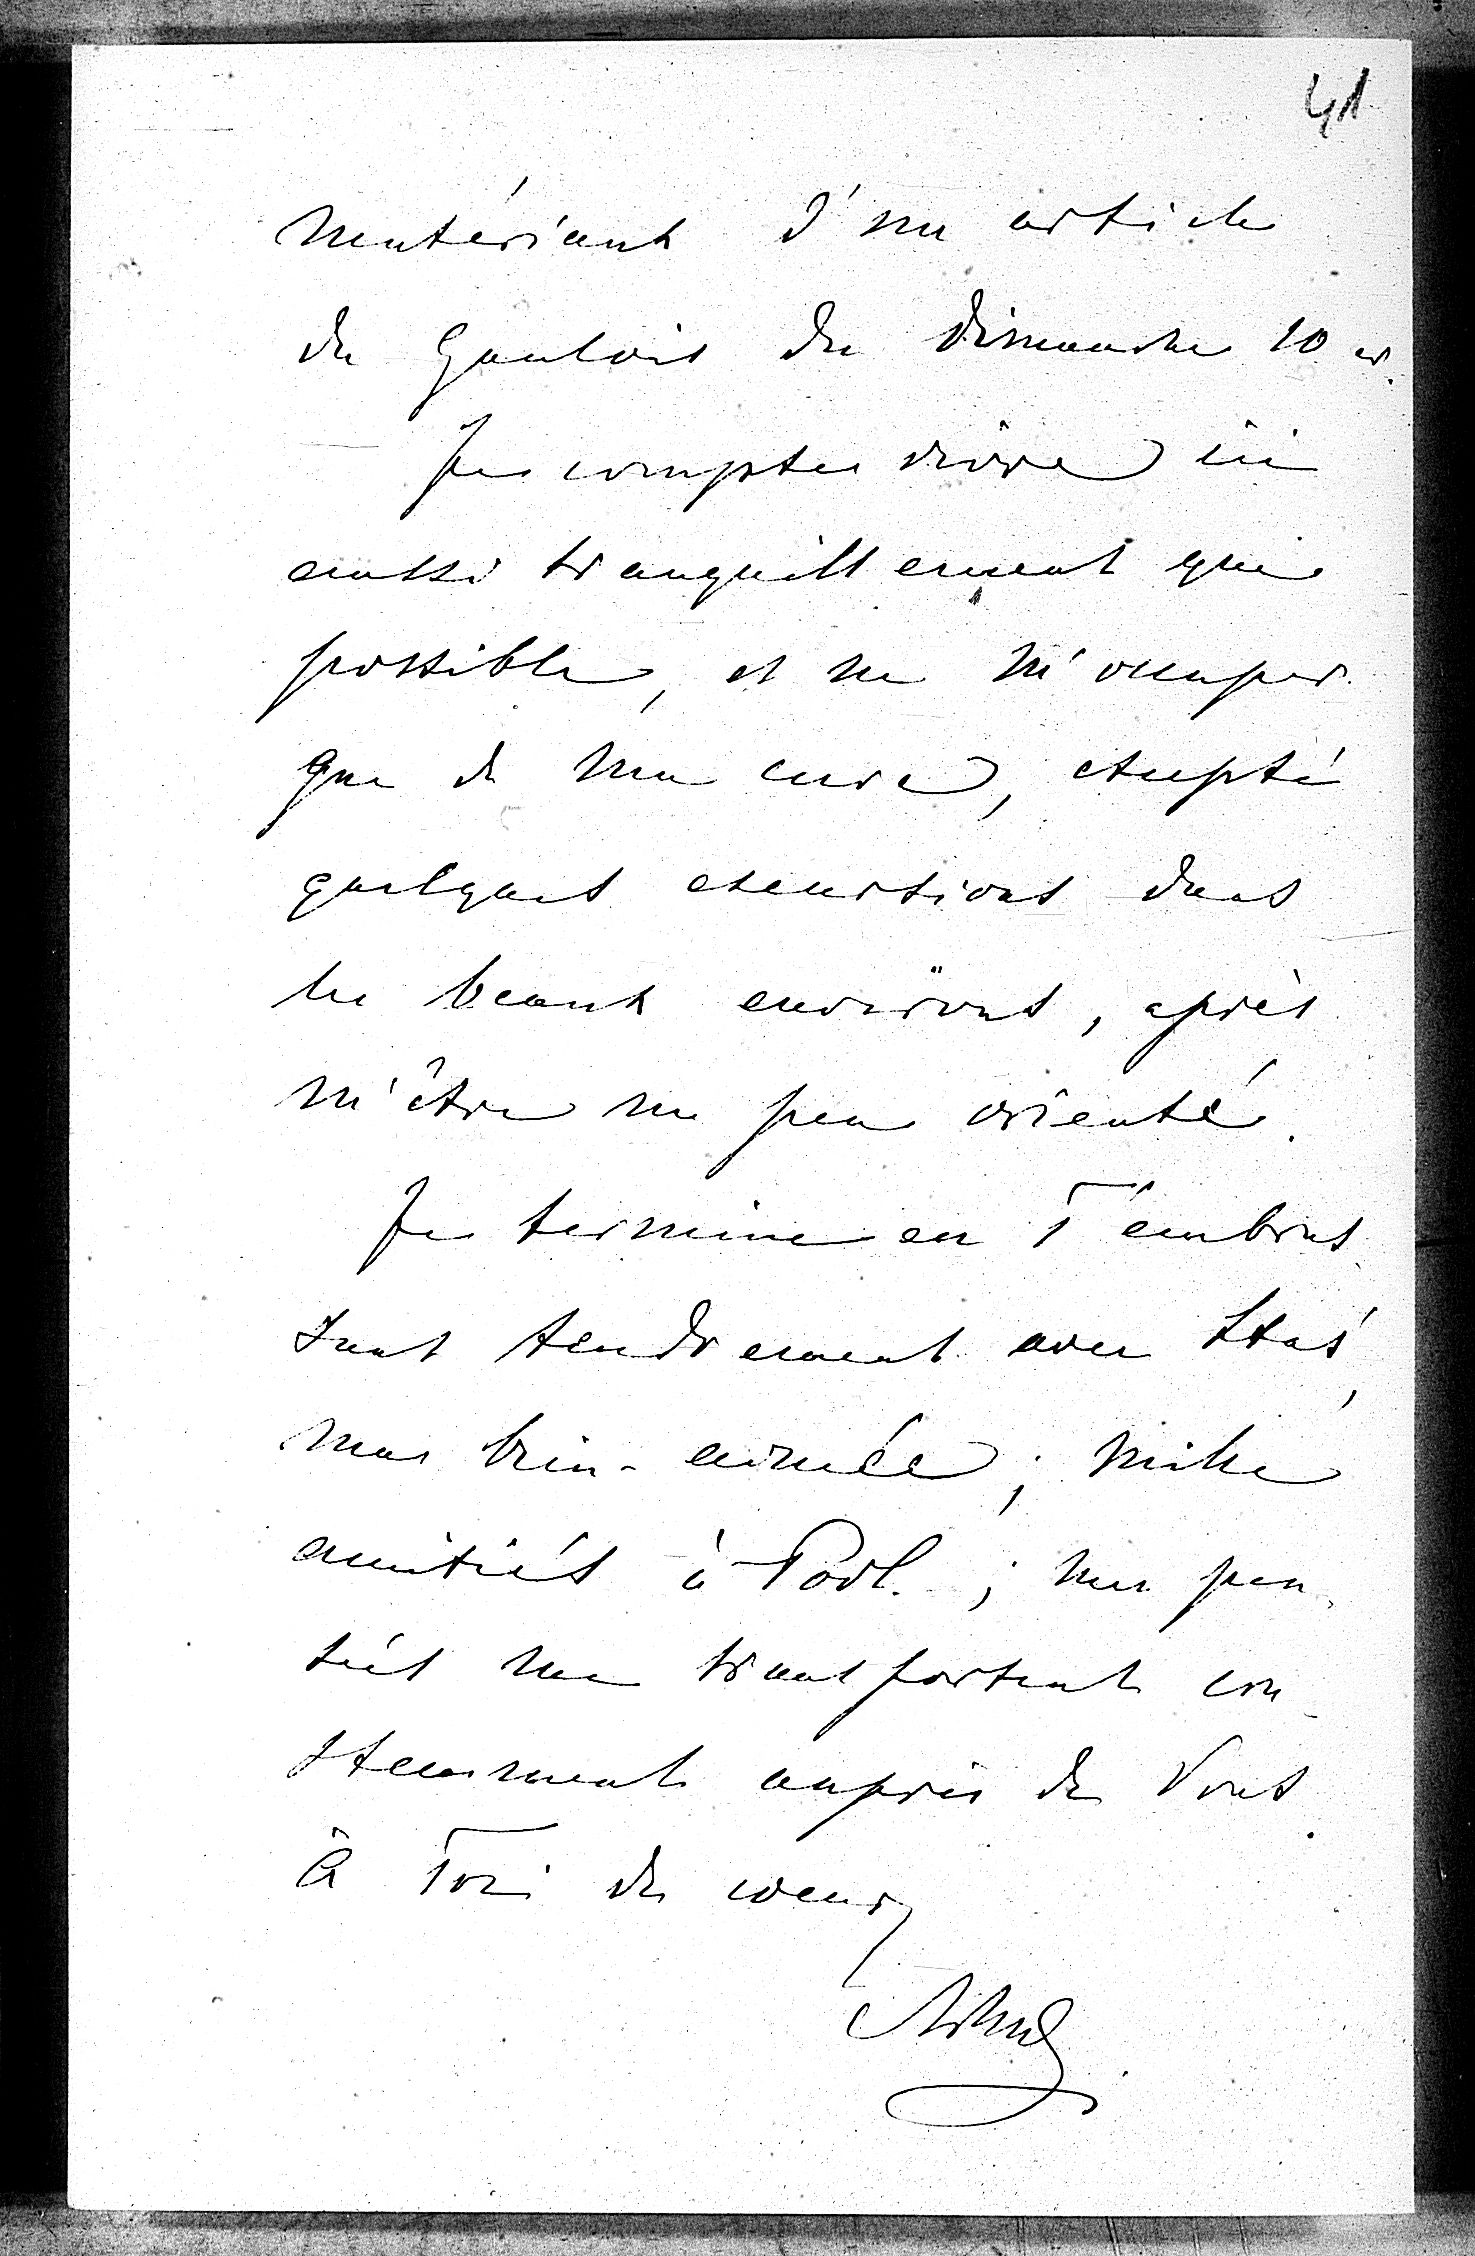 41
matériaux d'un article
du Gaulois du dimanche 10 cr.
Je compte vivre ici
aussi tranquillement que
possible, et ne m'occuper
que de ma cure, excepté
quelques excursions dans
les beaux environs, après
m'être un peu orienté.
Je termine en T'embras-
sant tendrement avec Stas,
ma bien-aimée; mille
amitiés à Podl.; mes pen-
sées me transportent con-
stamment auprès de Vous.
à Toi de coeur